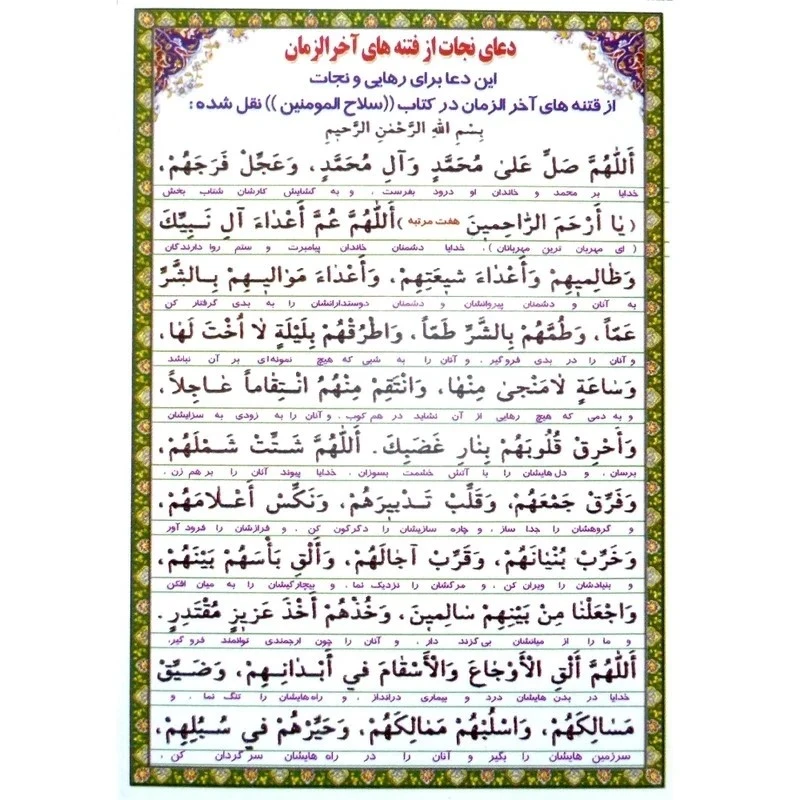 دعای نجات از فتنه های آخرالزمان
این دعا برای رهایی و نجات
از فتنه های آخر الزمان در کتاب ((سلاح المومنین )) نقل شده :
بِسْمِ اللهِ الرَّحْمٰنِ الرَّحیمِ
أَللّٰهُمَّ صَلِّ عَلیٰ مُحَمَّدٍ وَآلِ مُحَمَّدٍ، وَعَجِّلْ فَرَجَهُمْ،
خدایا بر محمد و خاندان او درود بفرست ، و به گشایش کارشان شتاب بخش
(یٰا أَرْحَمَ الرّٰاحِمینَ هفت مرتبه )أَللّٰهُمَّ عُمَّ أَعْدٰاءَ آلِ نَبِیِّكَ
( ای مهربان ترین مهربانان ) ، خدایا دشمنان خاندان پیامبرت و ستم روا دارندگان
وَظٰالِمیهِمْ وَأَعْدٰاءَ شیعَتِهِمْ، وَأَعْدٰاءَ مَوٰالیهِمْ بِالشَّرِّ
به آنان و دشمنان پیروانشان و دشمنان دوستدارانشان را به بدی گرفتار کن
عَمّاً، وَطُمَّهُمْ بِالشَّرِّ طَمّاً، وَاطْرُقْهُمْ بِلَیْلَةٍ لاٰ اُخْتَ لَهٰا،
و آنان را در بدی فرو گیر ، و آنان را به شبی که هیچ نمونه‌ای بر آن نباشد
وَسٰاعَةٍ لاٰمَنْجیٰ مِنْهٰا، وَانْتَقِمْ مِنْهُمُ انْتِقٰاماً عٰاجِلاً،
و به دمی که هیچ رهایی از آن نشاید در هم کوب ، و آنان را به زودی به سزایشان
وَأَحْرِقْ قُلُوبَهُمْ بِنٰارِ غَضَبِكَ. أَللّٰهُمَّ شَتِّتْ شَمْلَهُمْ،
برسان ، و دل هایشان را با آتش خشمت بسوزان . خدایا پیوند آنان را بر هم زن ،
وَفَرِّقْ جَمْعَهُمْ، وَقَلِّبْ تَدْبیرَهُمْ، وَنَكِّسْ أَعْلاٰمَهُمْ،
و گروهشان را جدا ساز ، و چاره سازیشان را دگرگون کن ، و فرازشان را فرود آور
وَخَرِّبْ بُنْیٰانَهُمْ، وَقَرِّبْ آجٰالَهُمْ، وَأَلْقِ بَأْسَهُمْ بَیْنَهُمْ،
و بنیادشان را ویران کن ، و مرگشان را نزدیک نما ، و بیچارگیشان را به میان افکن
وَاجْعَلْنٰا مِنْ بَیْنِهِمْ سٰالِمینَ، وَخُذْهُمْ أَخْذَ عَزیزٍ مُقْتَدِرٍ.
و ما را از میانشان بی گزند دار ، و آنان را چون ارجمندی توانمند فرو گیر ،
أَللّٰهُمَّ أَلْقِ الْأَوْجٰاعَ وَالْأَسْقٰامَ في أَبْدٰانِهِمْ، وَضَیِّقْ
خدایا در بدن هایشان درد و بیماری درانداز ، و راه هایشان را تنگ نما ، و
مَسٰالِكَهُمْ، وَاسْلُبْهُمْ مَمٰالِكَهُمْ، وَحَیِّرْهُمْ في سُبُلِهِمْ،
سرزمین هایشان را بگیر و آنان را در راه هایشان سرگردان کن ،